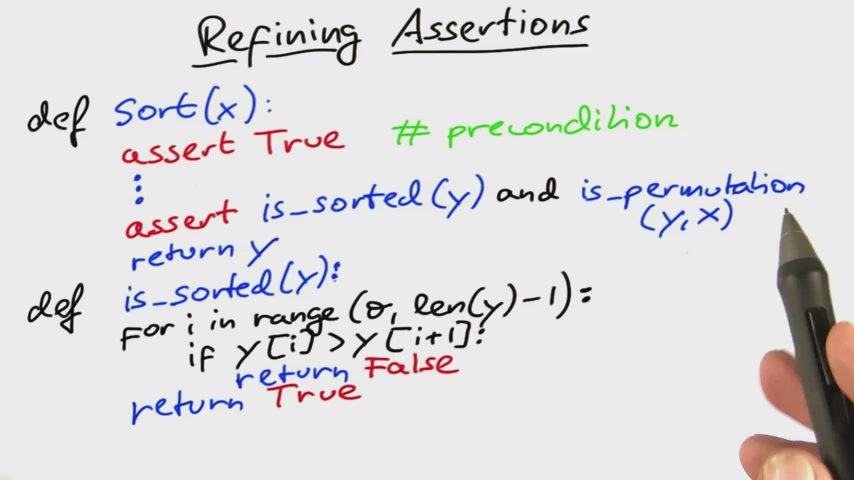 Refining Assertions
def sort(x):
assert True # precondition
:
assert is_sorted(y) and is_permutation
(y, x)
return y
def is_sorted(y):
for i in range (0, len(y)-1):
if y[i] > y[i+1]:
return False
return True